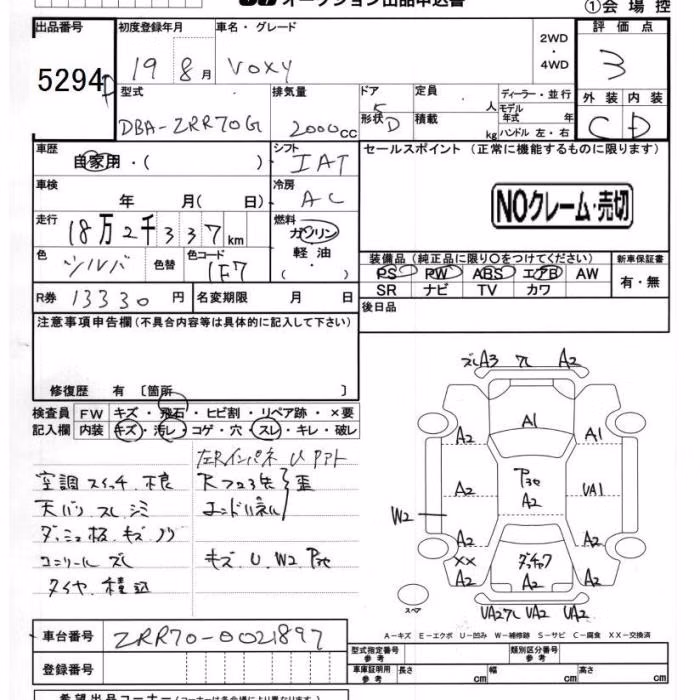 オークション出品申込書
①会場控
出品番号 初度登録年月 車名・グレード 2WD・4WD 評価点
5294 19年 8月 VOXY 3
型式 排気量 ドア 定員 ディーラー・並行 外装 内装
DBA-ZRR70G 2000cc 5 人 モデル年式 年 C D
形状 D 積載 kg ハンドル 左・右
車歴 シフト セールスポイント (正常に機能するものに限ります)
自家用・( ) IAT
車検 年 月( 日) 冷房 AC
NOクレーム・売切
走行 18万2千337km 燃料 ガソリン
軽油
( ・ )
色 シルバ 色替 色コード 1F7
装備品 (純正品に限り〇をつけてください) 新車保証書
PS PW ABS エアB AW 有・無
SR ナビ TV カワ
R券 13330円 名変期限 月 日 後日品
注意事項申告欄(不具合内容等は具体的に記入して下さい)
修復歴 有 〔箇所 〕
検査員 FW キズ・飛石・ヒビ割・リペア跡・×要
記入欄 内装 キズ・汚レ・コゲ・穴・スレ・キレ・破レ
左Rインパネ U
空調スイッチ 不良
天バリ スレ シミ エンドパネル
コンソール ズレ キズ.U.W2
タイヤ 積込
ズレA3 ワレ A2
A1
A2 A1
A2 A2 UA1
W2
A2 A2
XX
A2 A2 A2
スペア
UA2ワレ UA2 UA2
A-キズ E-エクボ U-凹み W-補修跡 S-サビ C-腐食 XX-交換済
車台番号 ZRR70-0021897
型式指定番号 参考 類別区分番号 参考
登録番号 車庫証明用 参考 長さ cm 幅 cm 高さ cm
希望出品コーナー